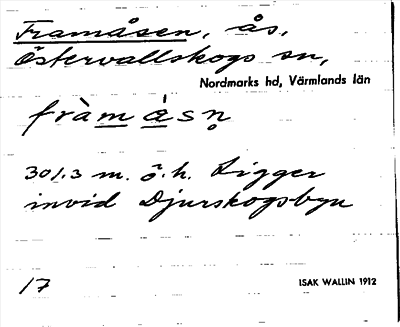 Framåsen, ås,
Östervallskogs sn,
Nordmarks hd, Värmlands län
fràmåsn̥
301.3 m. ö. h. Ligger
invid Djurskogsbyn
17
ISAK WALLIN 1912